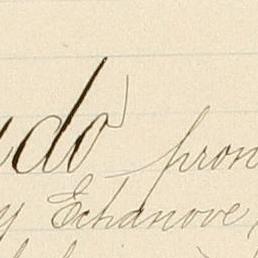 do pron
y Echanove